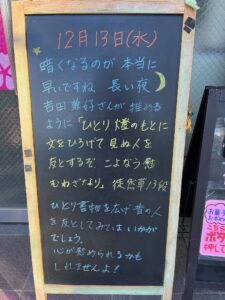 12月13日(水)
暗くなるのが 本当に
早いですね 長い夜
吉田兼好さんが 推める
ように「ひとり 燈のもとに
文をひろげて 見ぬ人を
友とするぞ こよなう慰
むわざなり」徒然草13段
ひとり書物を広げ 昔の人
を友としてみては いかが
でしょう。
心が慰められるかも
しれませんよ!
お菓子
こちら
ボタ
押して